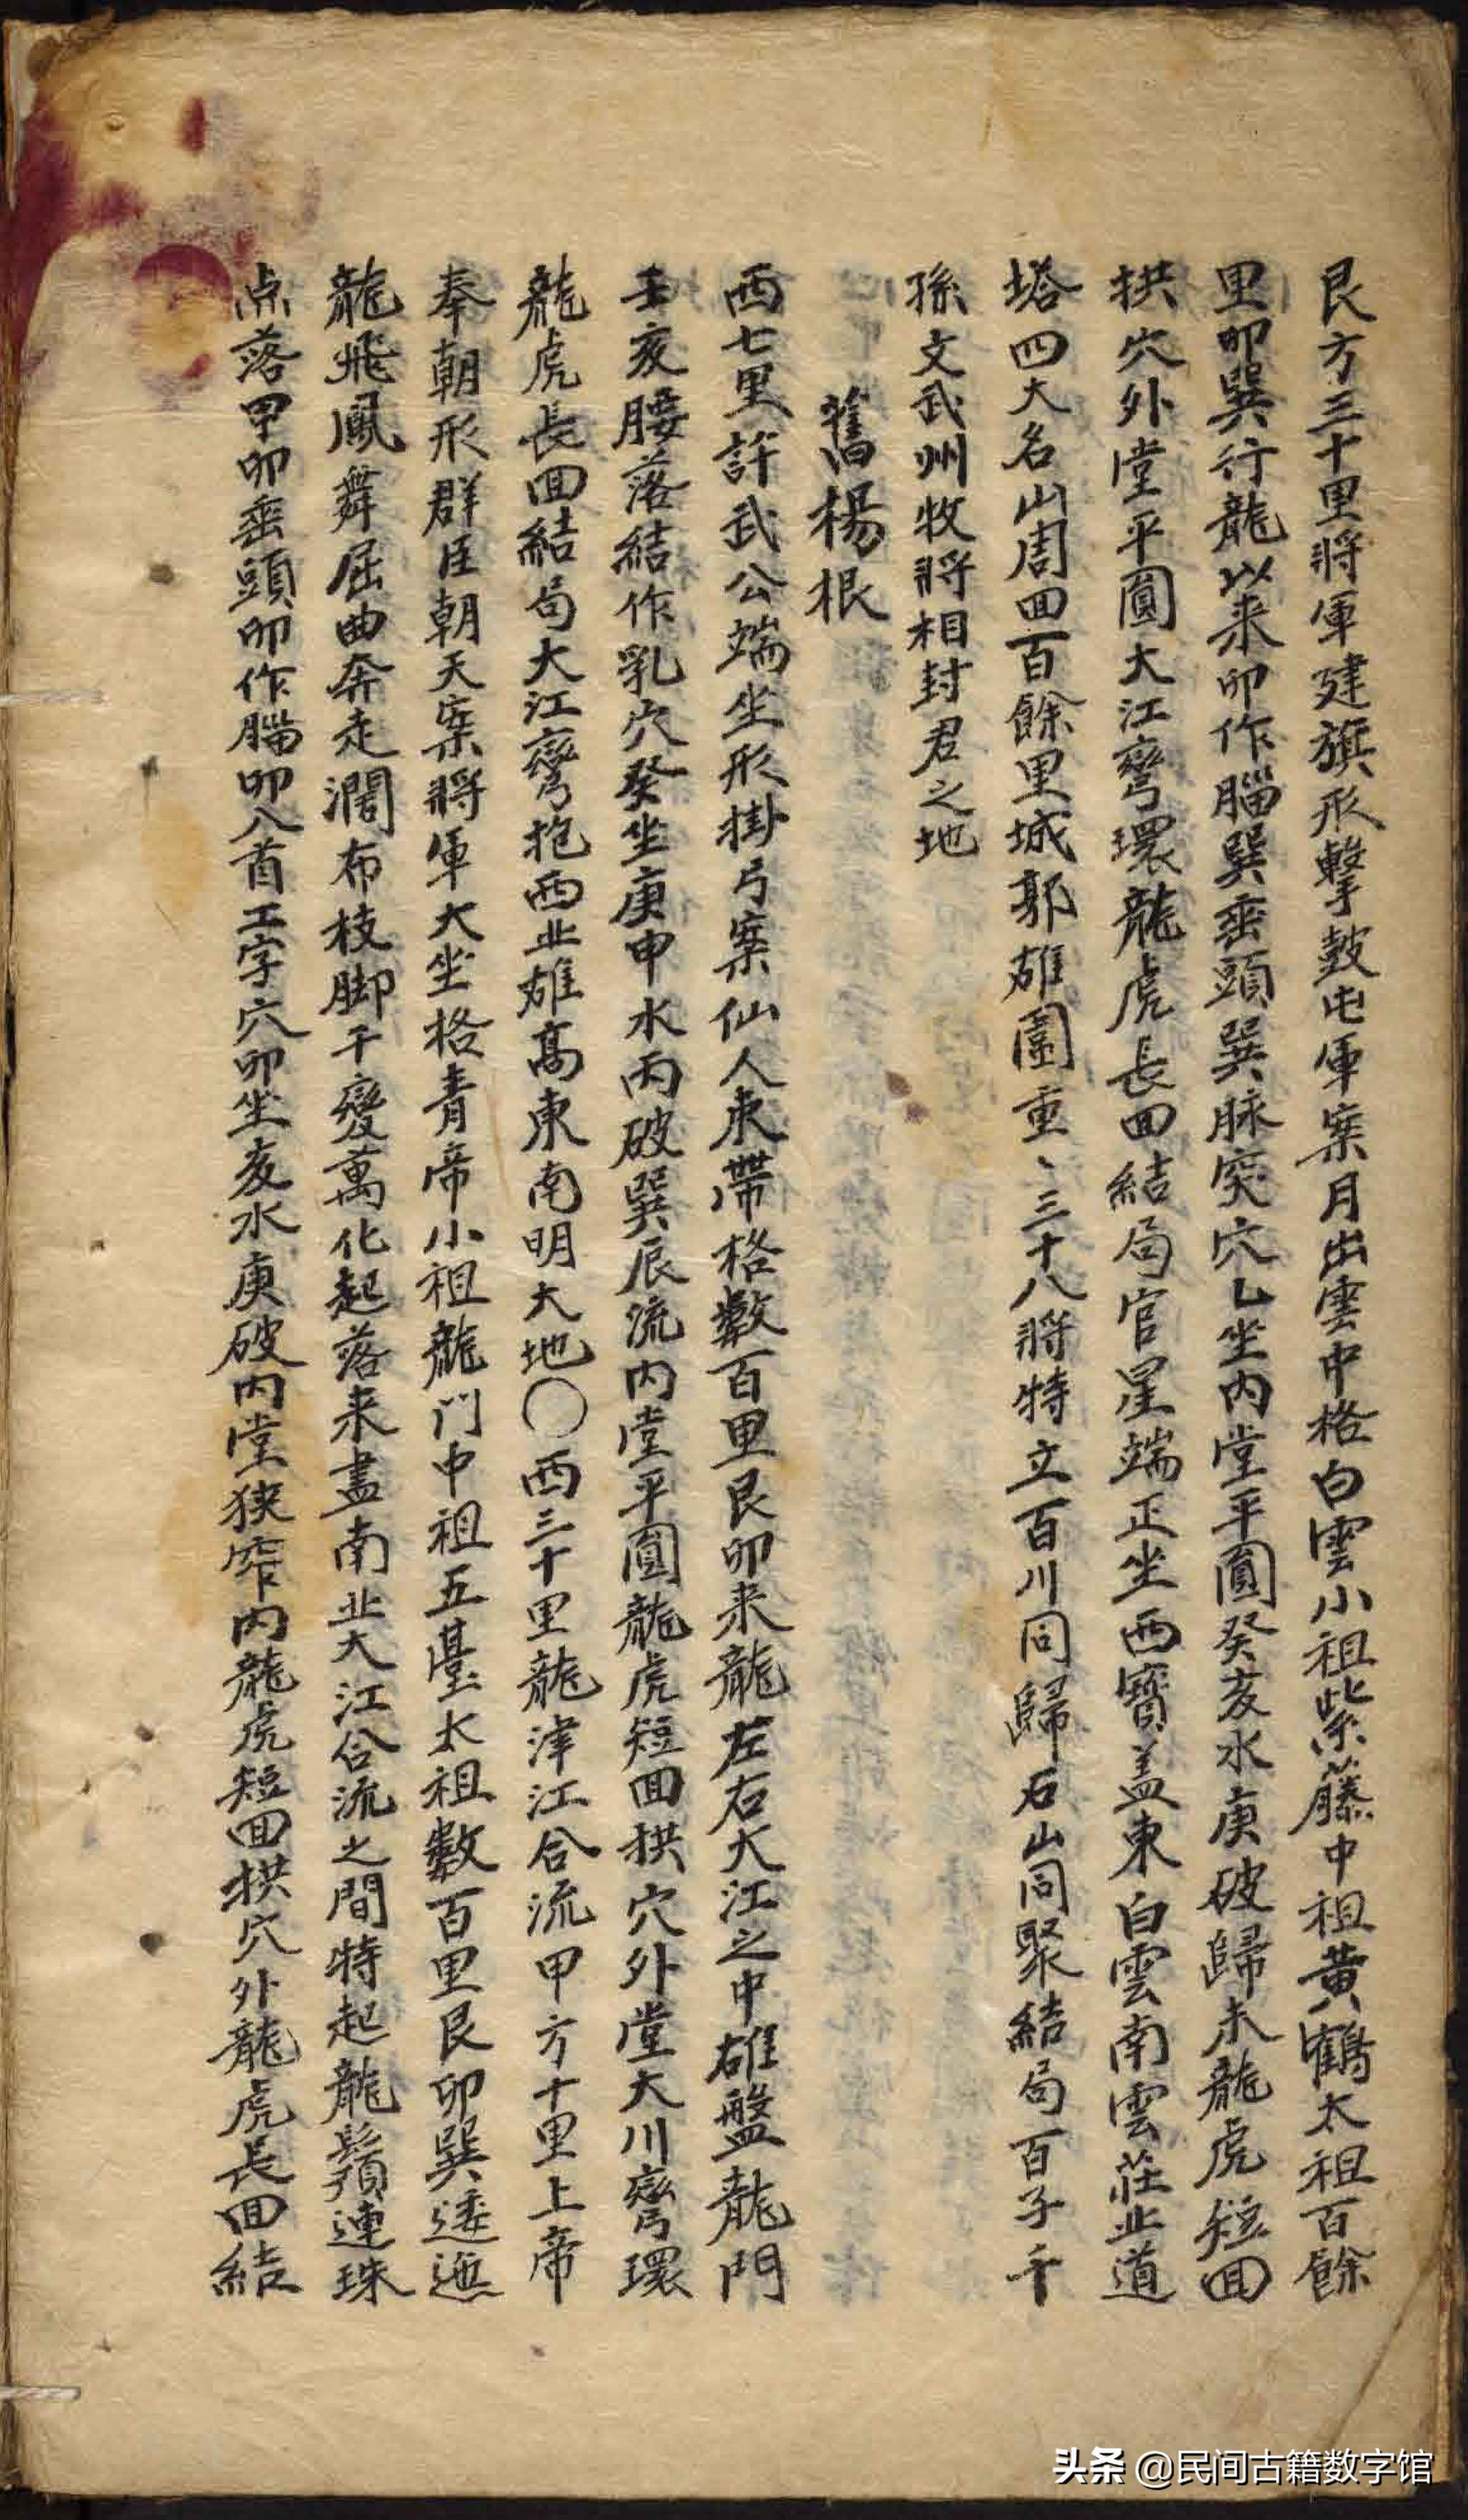 艮方三十里將軍建旗形擊鼓屯軍案月出雲中格白雲小祖紫藤中祖黃鶴太祖百餘
里卯巽行龍以来卯作腦巽垂頭巽脉突穴乚坐內堂平圓癸亥水庚破歸未龍虎短回
拱穴外堂平圓大江彎環龍虎長回結局官星端正坐西寶盖東白雲南雲莊北道
塔四大名山周回百餘里城郭雄圍重〻三十八將特立百川同歸石山同聚結局百子千
孫文武州牧將相封君之地
舊楊根
西七里許武公端坐形掛弓案仙人束帶格數百里艮卯来龍左右大江之中雄盤龍門
壬亥腰落結作乳穴癸坐庚申水丙破巽辰流內堂平圓龍虎短回拱穴外堂大川彎環
龍虎長回結局大江彎抱西北雄高東南明大地〇西三十里龍津江合流甲方十里上帝
奉朝形群臣朝天案將軍大坐格青帝小祖龍门中祖五臺太祖數百里艮卯巽逶迤
龍飛鳳舞屈曲奔走濶布枝脚千變萬化起落来盡南北大江合流之間特起龍鬚連珠
点落甲卯垂頭卯作腦卯入首工字穴卯坐亥水庚破內堂狹窄內龍虎短回拱穴外龍虎長回結
头条 @民间古籍数字馆